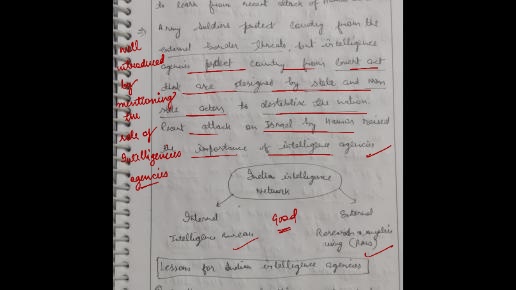 to learn from recent attack of Hamas on
Army soldiers protect country from the
external border threats, but intelligence
agencies protect country from covert act
that are designed by state and non
state actors to destabilise the nation.
Recent attack on Israel by Hamas raised
the importance of intelligence agencies
well
introduced
by
mentioning
the
role of
Intelligencies
agencies
Indian intelligence
Network
Internal
Good
External
Intelligence Bureau
Research n analysis
wing (RAW)
Lessons for Indian intelligence agencies